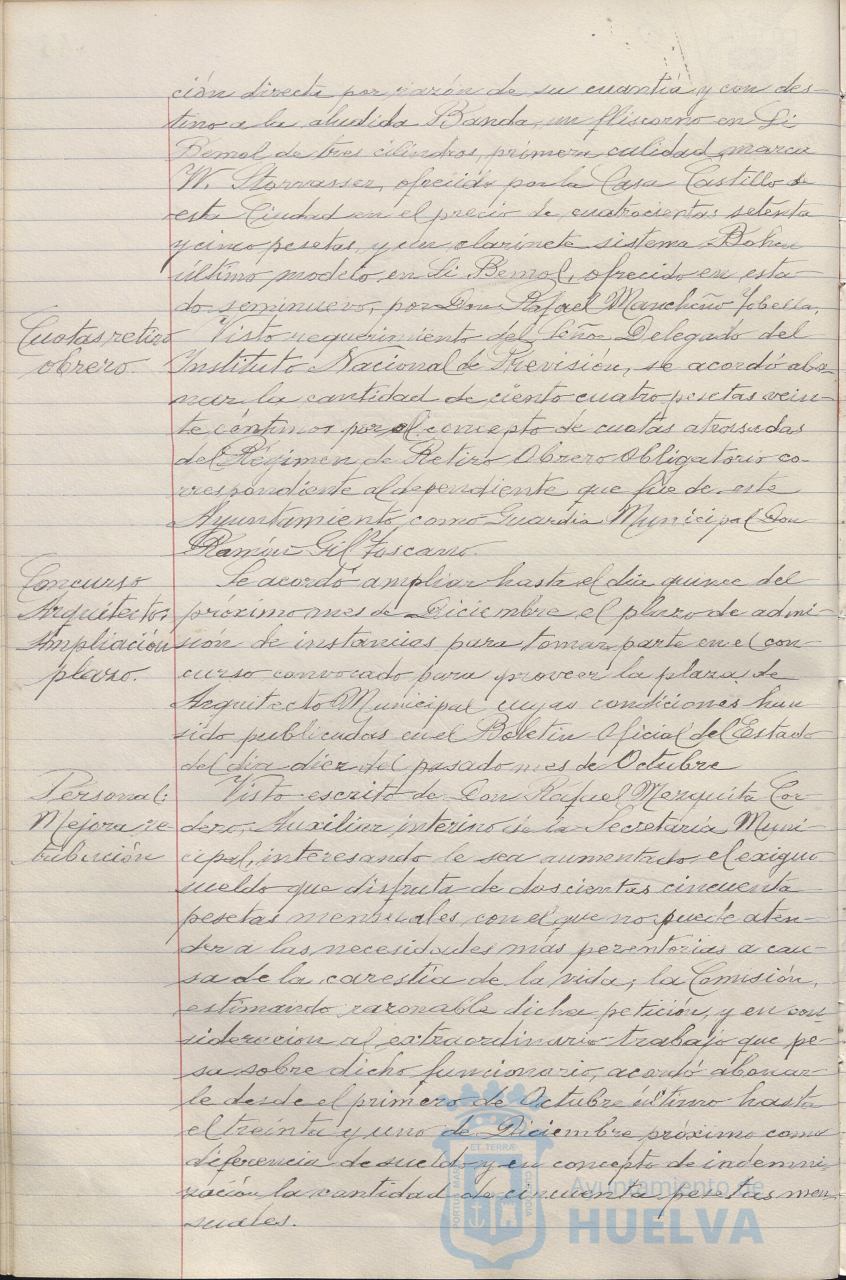 ción directa por razón de su cuantía y con des-
tino a la aludida Banda, un fliscorno en Si
Bemol de tres cilindros, primera calidad, marca
W. ofrecido por la Casa Castillo de
esta Ciudad en el precio de cuatrocientas setenta
y cinco pesetas, y un clarinete sistema
último modelo en Si Bemol, ofrecido en esta-
do seminuevo, por Don Rafael Mancheño
Cuotas retiro
obrero.
Visto requerimiento del Señor Delegado del
Instituto Nacional de Previsión, se acordó abo-
nar la cantidad de ciento cuatro pesetas vein-
te céntimos por el concepto de cuotas atrasadas
del Régimen de Retiro Obrero Obligatorio co-
rrespondiente al dependiente que fué de este
Ayuntamiento, como Guardia Municipal Don
Ramón Gil Toscano.
Concurso
Arquitecto:
Ampliación
plazo.
Se acordó ampliar hasta el dia quince del
próximo mes de Diciembre el plazo de admi-
sión de instancias para tomar parte en el con-
curso convocado para proveer la plaza de
Arquitecto Municipal cuyas condiciones han
sido publicadas en el Boletín Oficial del Estado
del dia diez del pasado mes de Octubre
Personal:
Mejora re-
tribución
Visto escrito de Don Rafael Mezquita Cor-
dero, Auxiliar interino de la Secretaría Muni-
cipal, interesando le sea aumentado el exiguo
sueldo que disfruta de doscientas cincuenta
pesetas mensuales con el que no puede aten-
der a las necesidades más perentorias a cau-
sa de la carestía de la vida; la Comisión,
estimando razonable dicha petición, y en con-
sideración al extraordinario trabajo que pe-
sa sobre dicho funcionario, acordó abonar-
le desde el primero de Octubre último hasta
el treinta y uno de Diciembre próximo como
diferencia de sueldo y en concepto de indemni-
zación la cantidad de cincuenta pesetas men-
suales.
ET TERRÆ
PORTUS MARIS
CUSTODIA
Ayuntamiento de
HUELVA